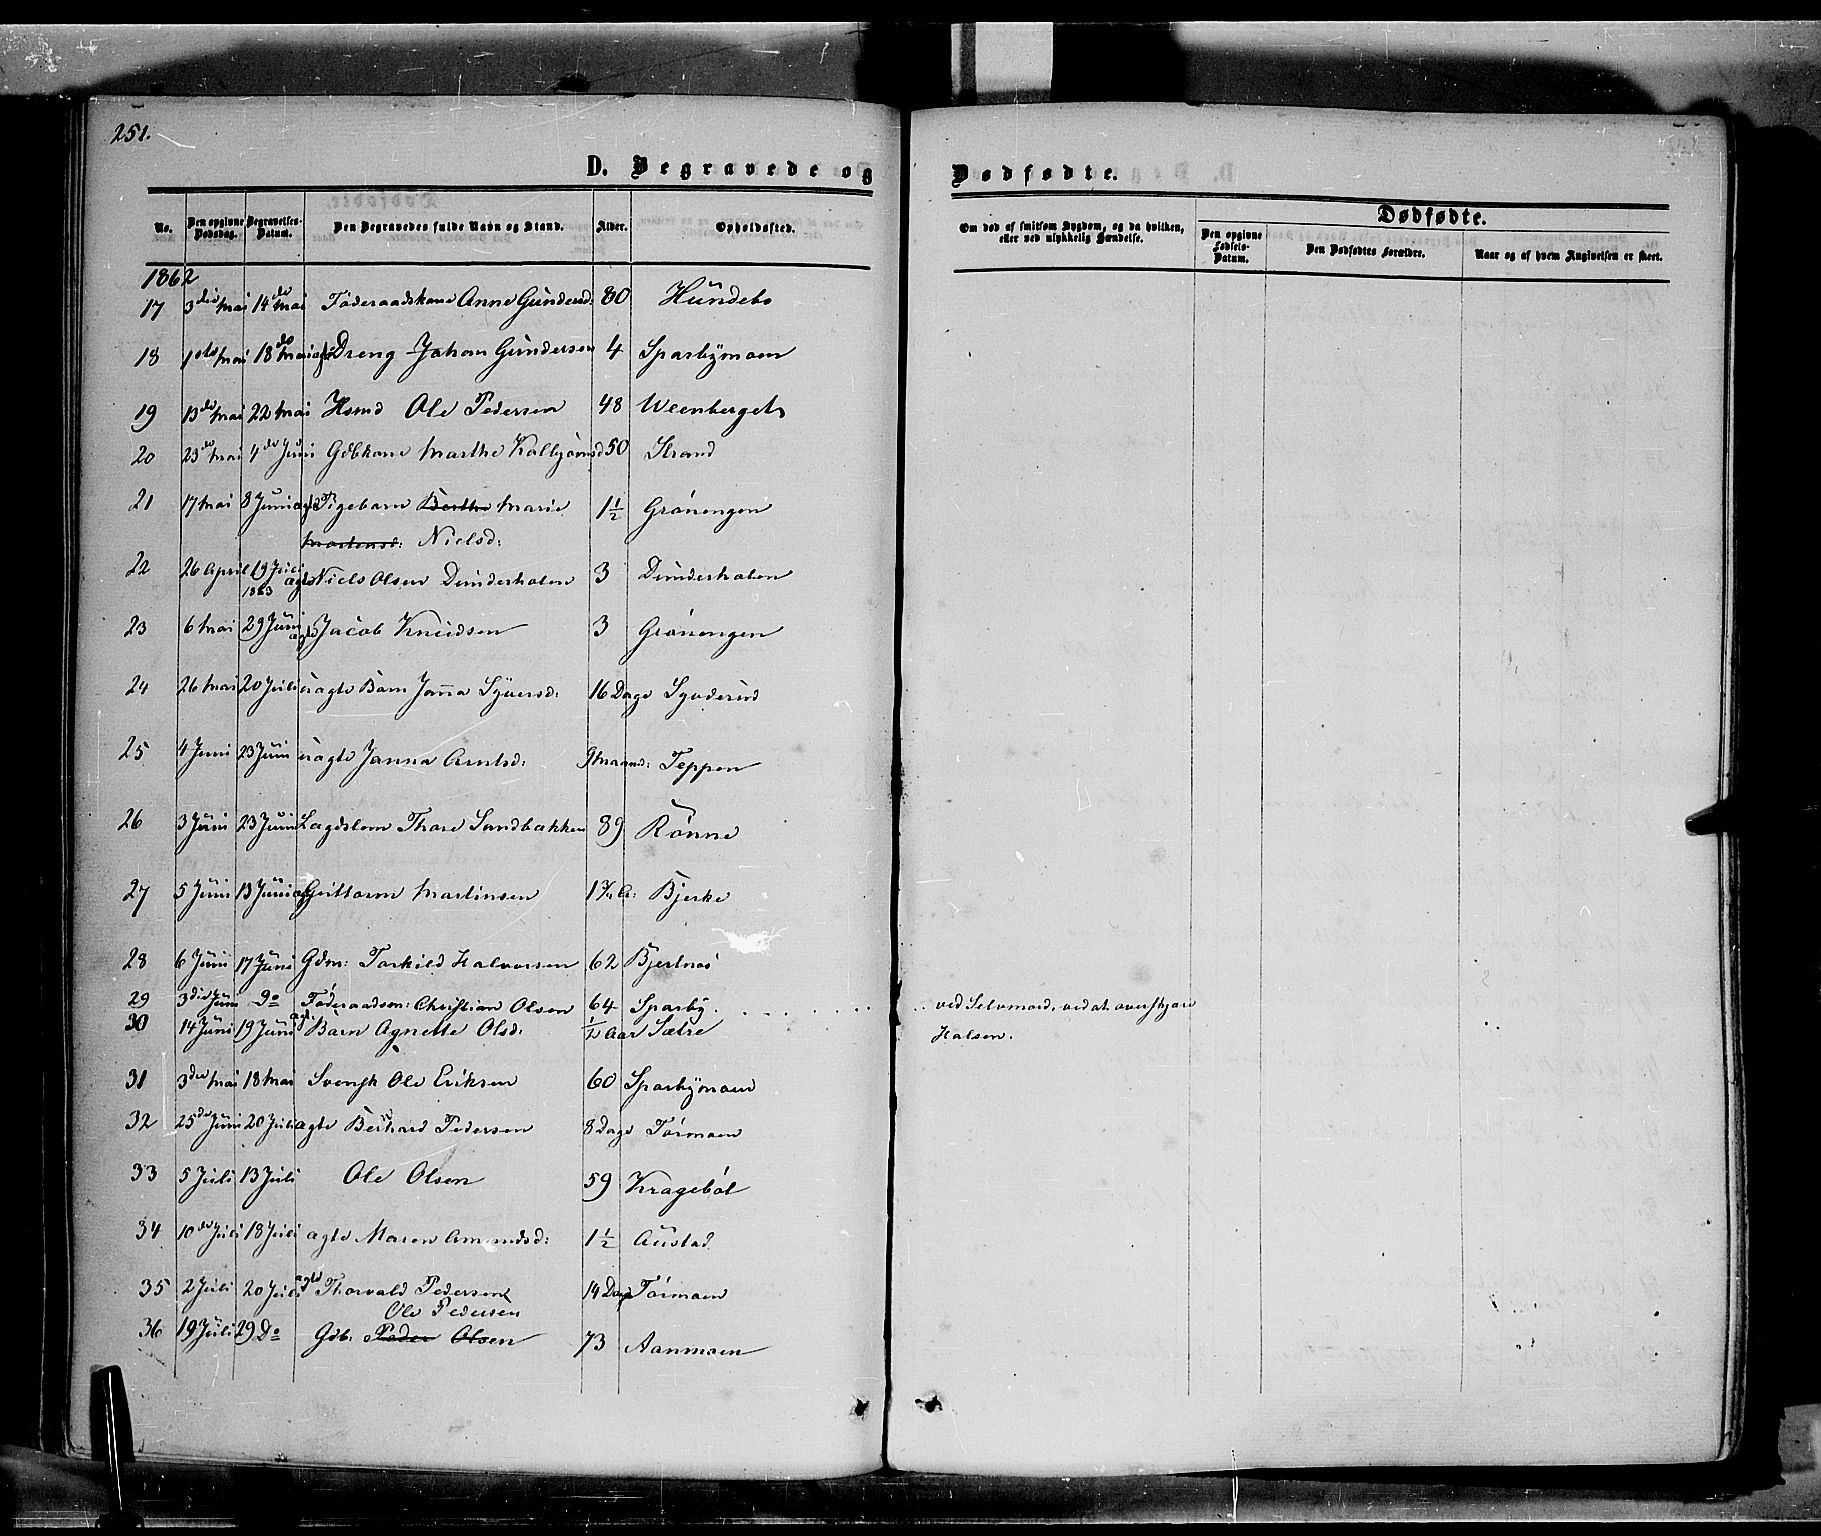 251.
D. Begravede og
Dødfødte.
No. Den opgivne Dødsdag. Begravelses-Datum. Den Begravedes fulde Navn og Stand. Alder. Opholdssted.
Om død af smitsom Sygdom, og da hvilken, eller ved ulykkelig Hændelse.
Dødfødte.
Den opgivne Fødsels-Datum. Den Dødfødtes Forældre. Naar og af hvem Angivelsen er skeet.
1862
17 3die Mai 14de Mai Föderaadskone Anne Gundersd: 80 Hundebø
18 1ste Mai 18de Mai Dreng Johan Gundersen 4 Sparbymoen
19 13de Mai 22 Mai Hsmd Ole Pedersen 48 Weenberget
20 23de Mai 4de Juni Gdbkone Marthe Kolbjørnsd 50 Strand
21 17 Mai 8 Juni ægte Pigebarn Berthe Marie 1½ Grønengen
Mortensd: Nielsd:
22 26 April 19 Juli 1863 ægte Niels Olsen Dunderholen 3 Dunderholen
23 6 Mai 29 Juni ægte Jacob Knudsen 3 Grønengen
24 26 Mai 20 Juli uægte Barn Janna Syversd: 16 Dage Syvderud
25 4 Juni 23 Juni uægte Janna Arntsd: 9 Maand: Teppen
26 3 Juni 23 Juni Lægdslem Thore Sandbakken 89 Rönne
27 5 Juni 13 Juni Guttorm Martinsen 1 ¾ A: Bjerke
28 6 Juni 17 Juni Gdm: Torkild Halvorsen 62 Bjertnæs
29 3die Juni Do Föderaadsm: Christian Olsen 64 Sparby. ved Selvmord, ved at overskjære
30 14 Juni 19 Juni ægt: Barn Agnette Olsd: ½ Aar Sætre Halsen.
31 3die Mai 18 Mai Svensk Ole Eriksen 60 Sparbymoen
32 25de Juni 20 Juli ægte Bernhard Pedersen 8 Dage Tørmoen
33 5 Juli 13 Juli Ole Olsen 59 Krageböl
34 10de Juli 18 Juli ægte Maren Amundsd: 1½ Austad
35 2 Juli 20 Juli ægte Thorvald Pedersen 14 Dage Tørmoen
Ole Pedersen
36 19 Juli 29 Do Gdb: Peder Olsen 73 Aanmoen